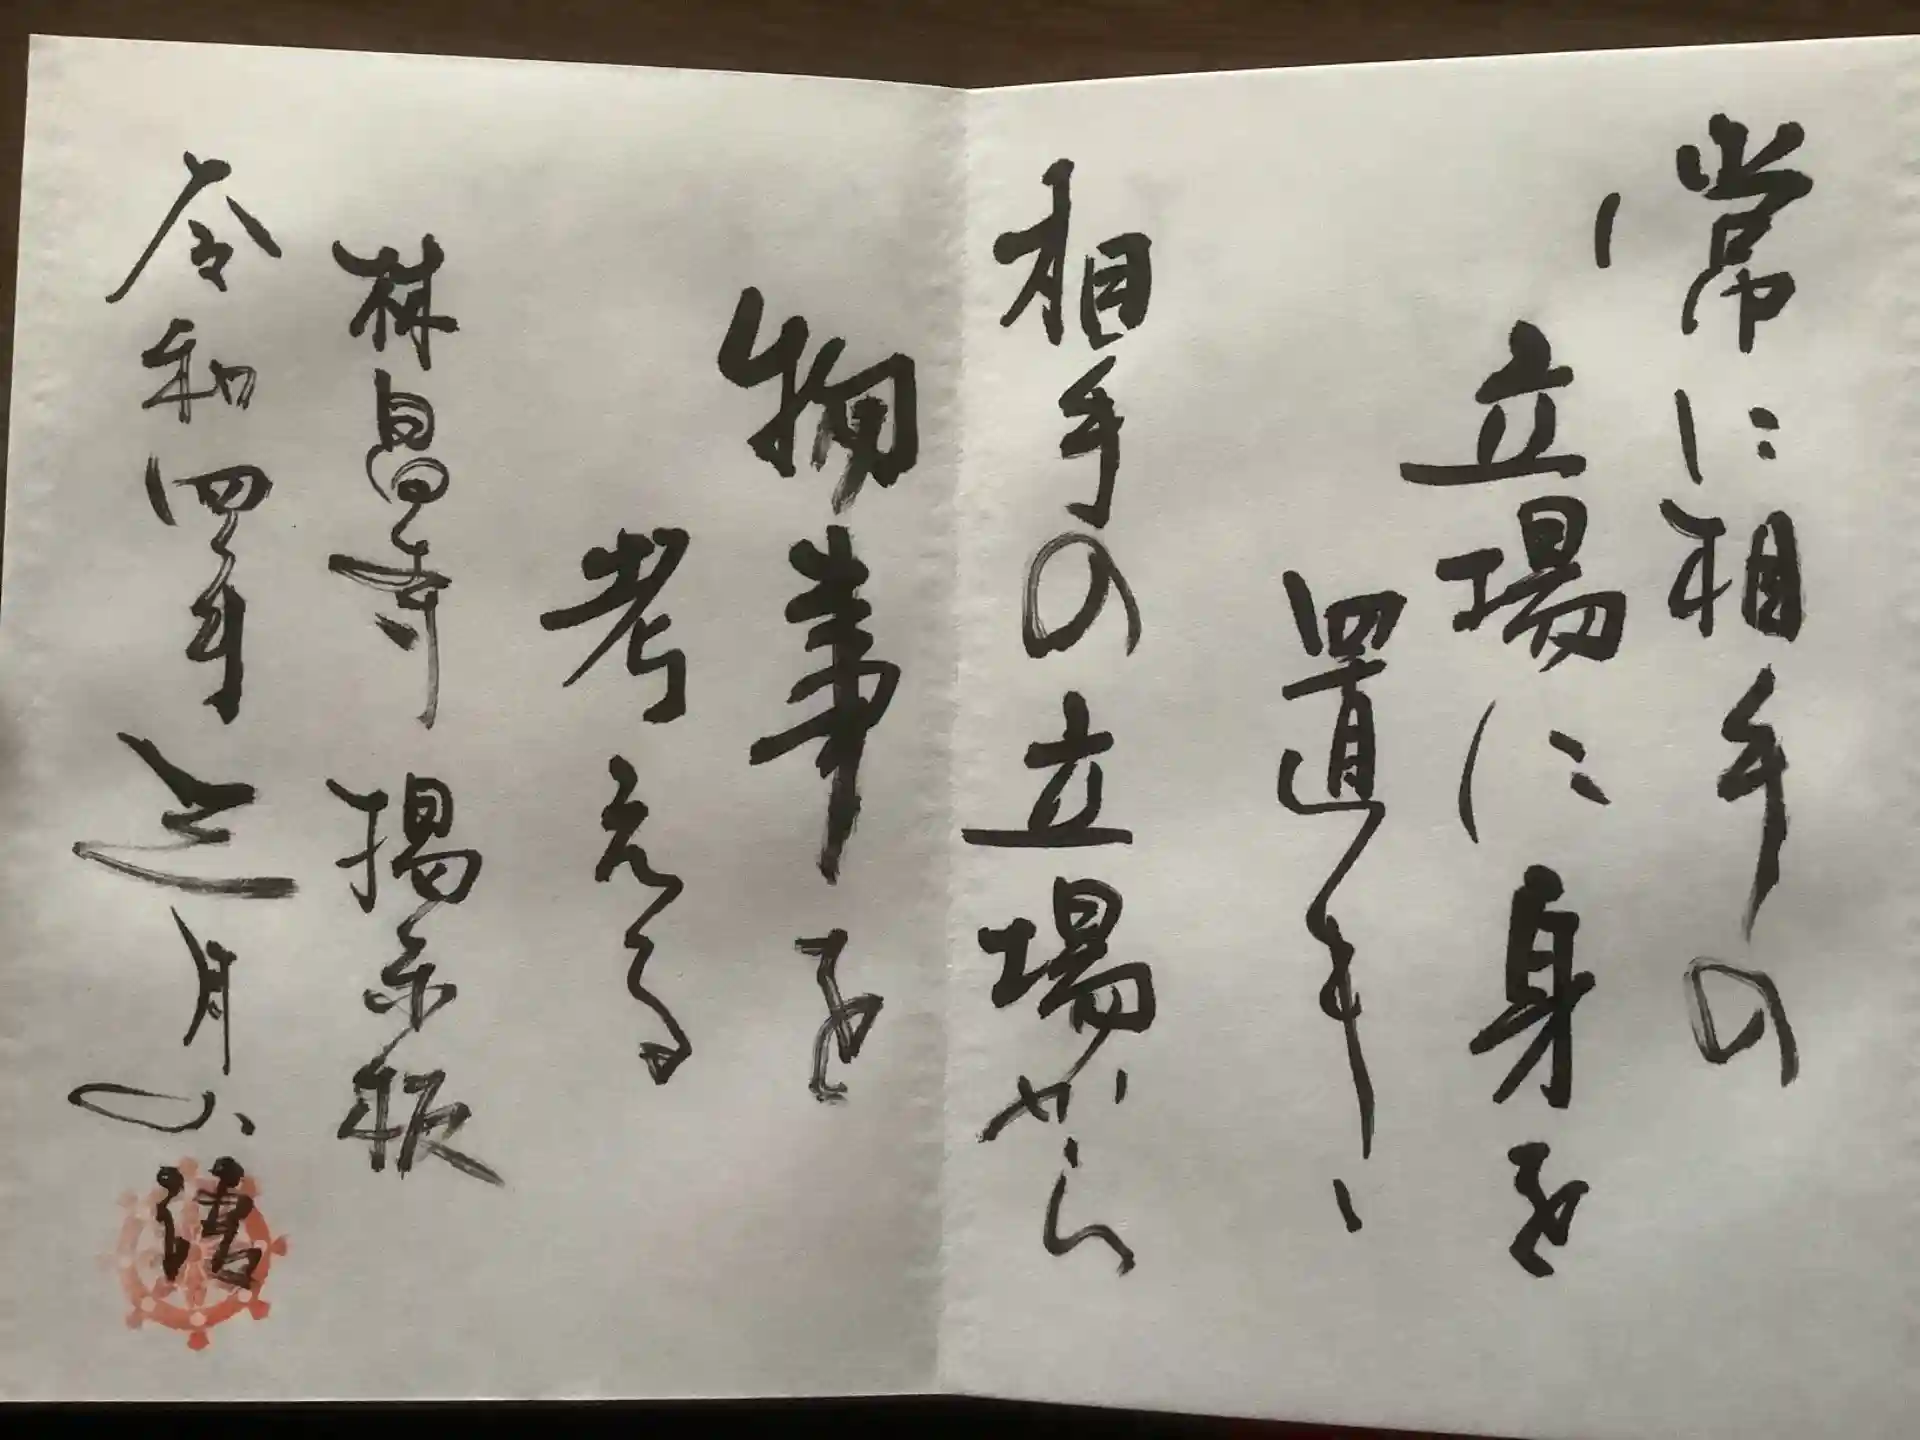 常に相手の
立場に身を
置き、
相手の立場から
物事を
考える
林昌寺 掲示板
令和四年 月